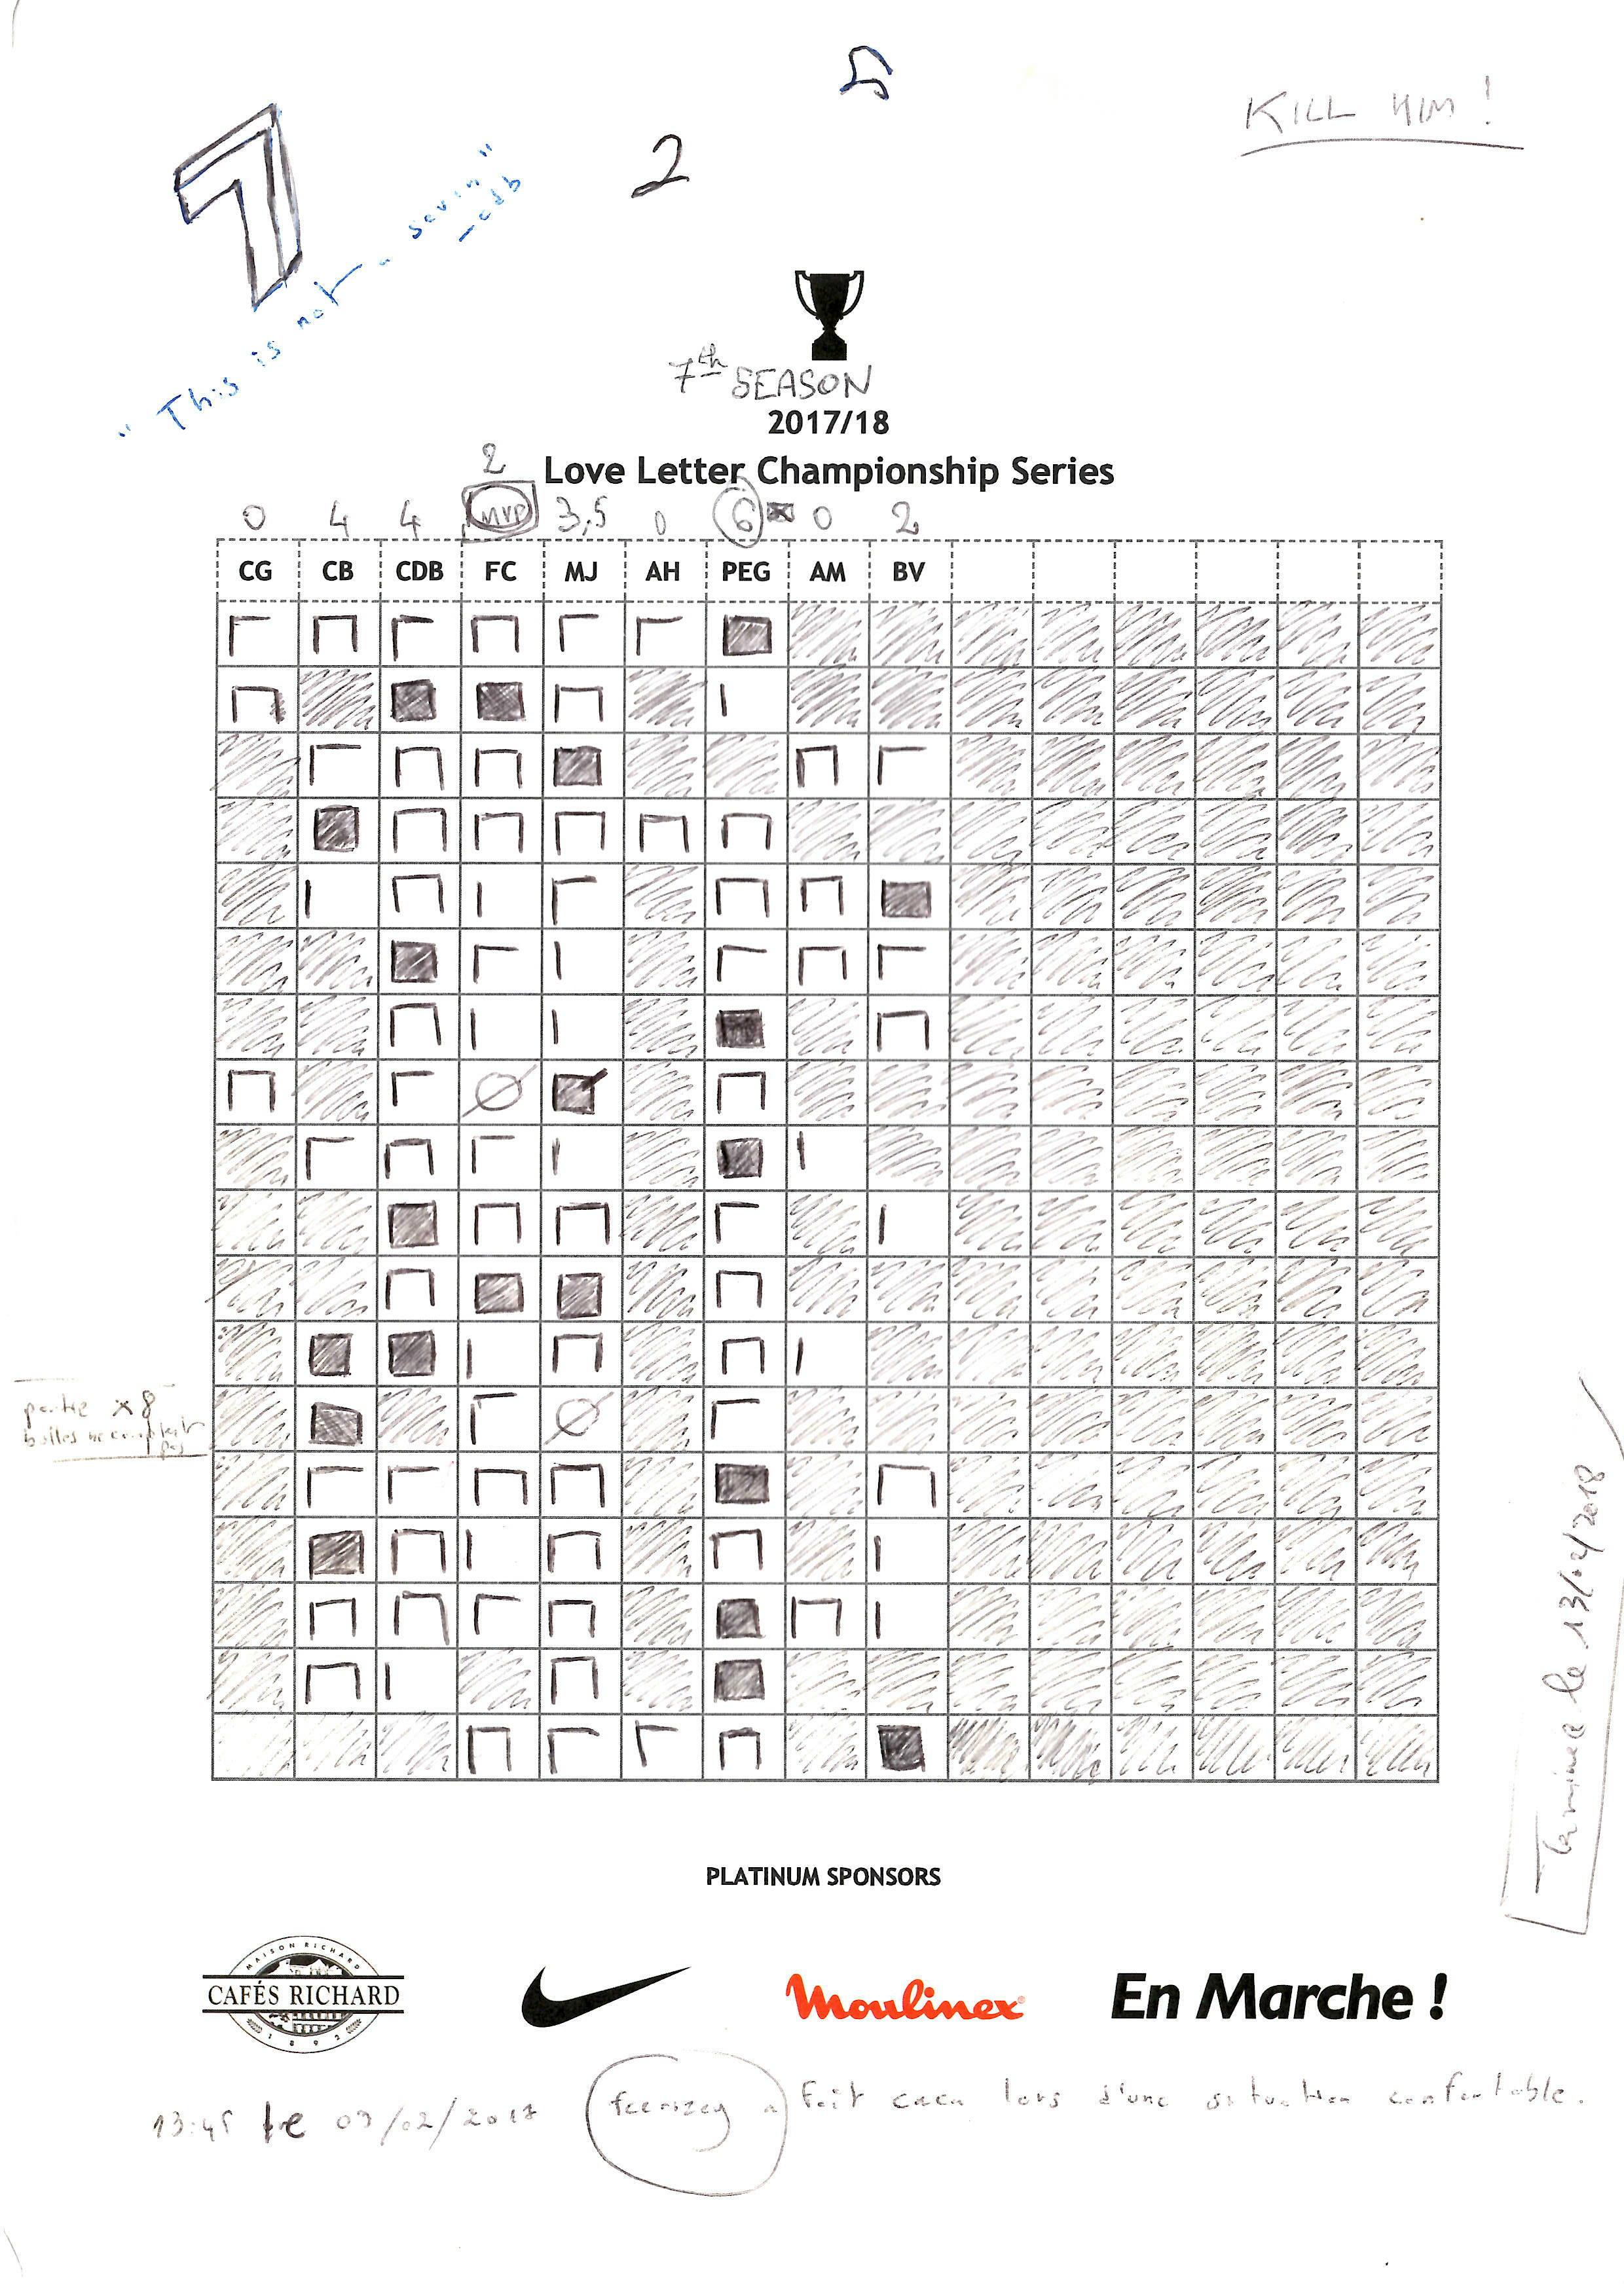 5
KILL HIM !
2
"This is not a sevin"
—cdb
7th SEASON
2017/18
Love Letter Championship Series
2
0 4 4 MVP 3,5 0 6 0 2
CG CB CDB FC MJ AH PEG AM BV
partie x 8
boîtes ne comptent
pas
Terminé le 13/02/2018
PLATINUM SPONSORS
MAISON RICHARD
CAFÉS RICHARD
1892
Moulinex
En Marche !
13:45 le 09/02/2017 a fait caca lors d'une situation confortable.